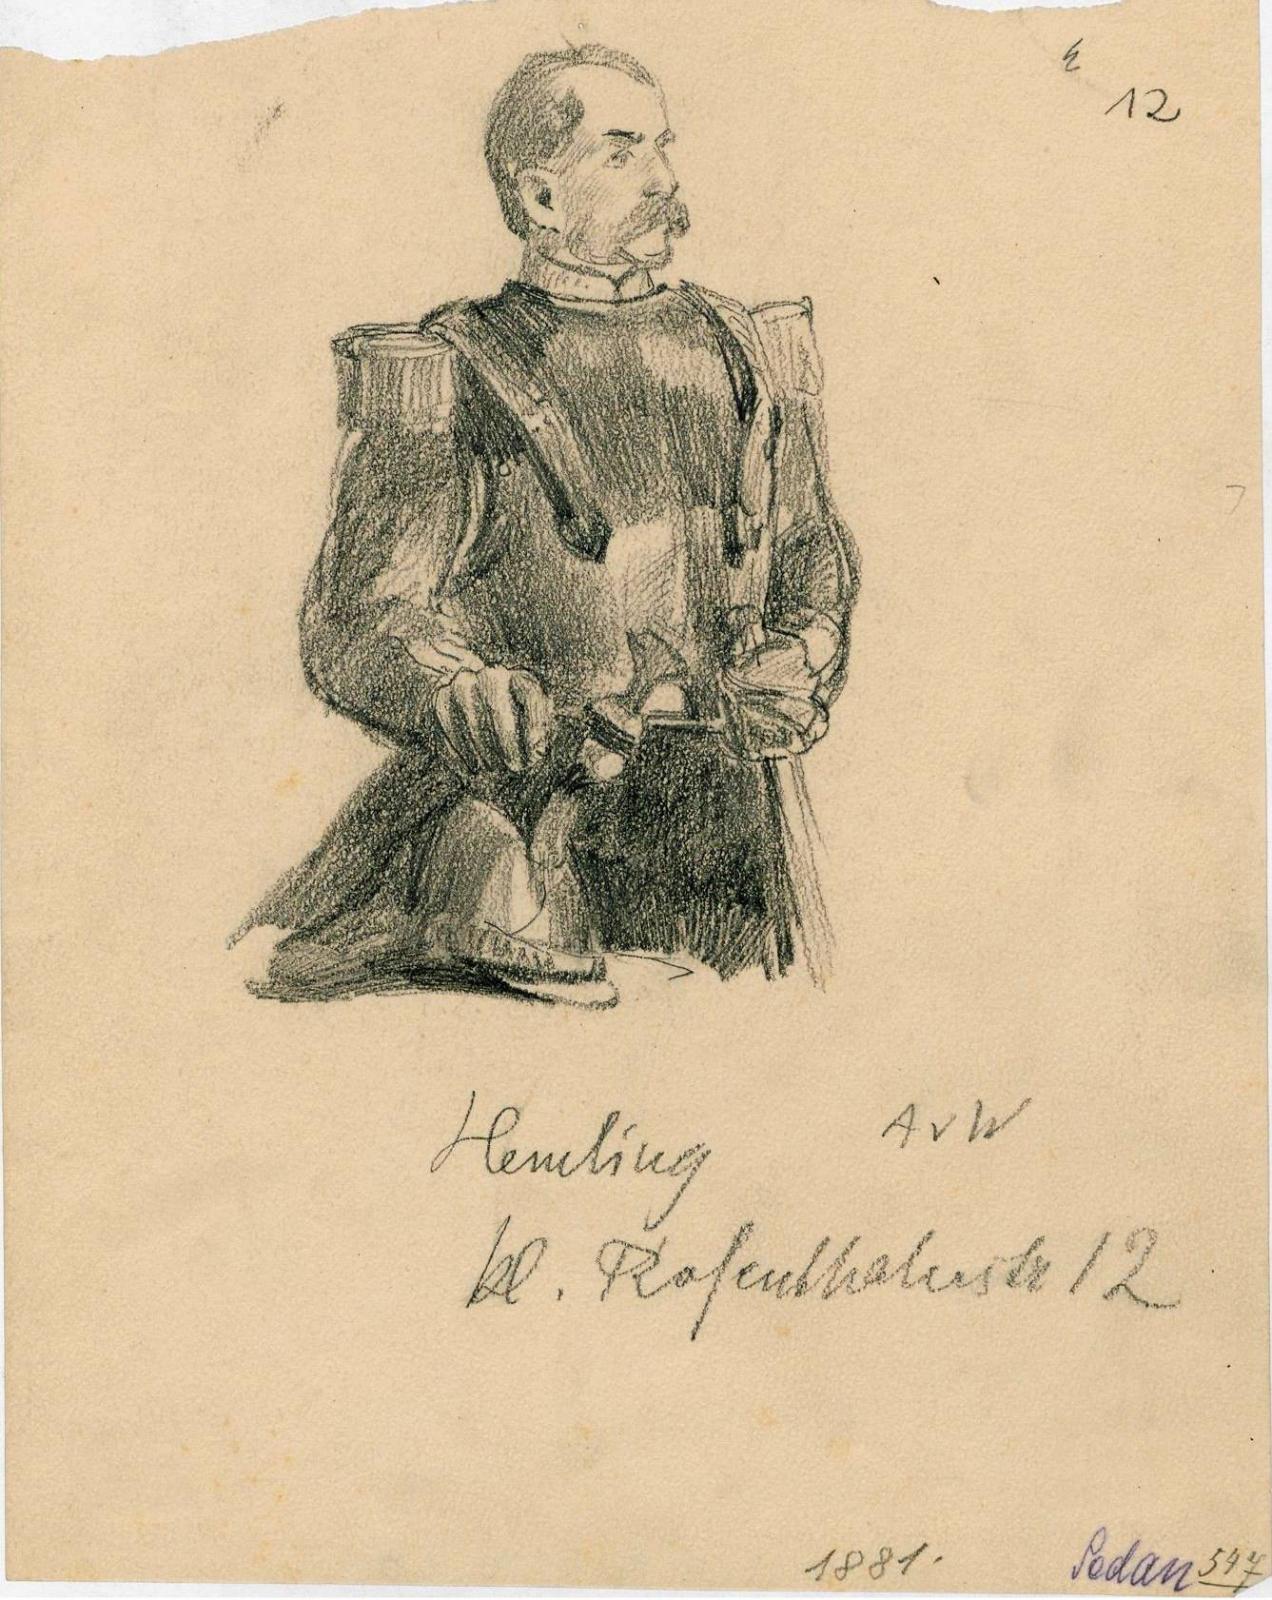 12
Hemling AvW
kl. Rosenthalerstr 12
1881.
Sedan 547